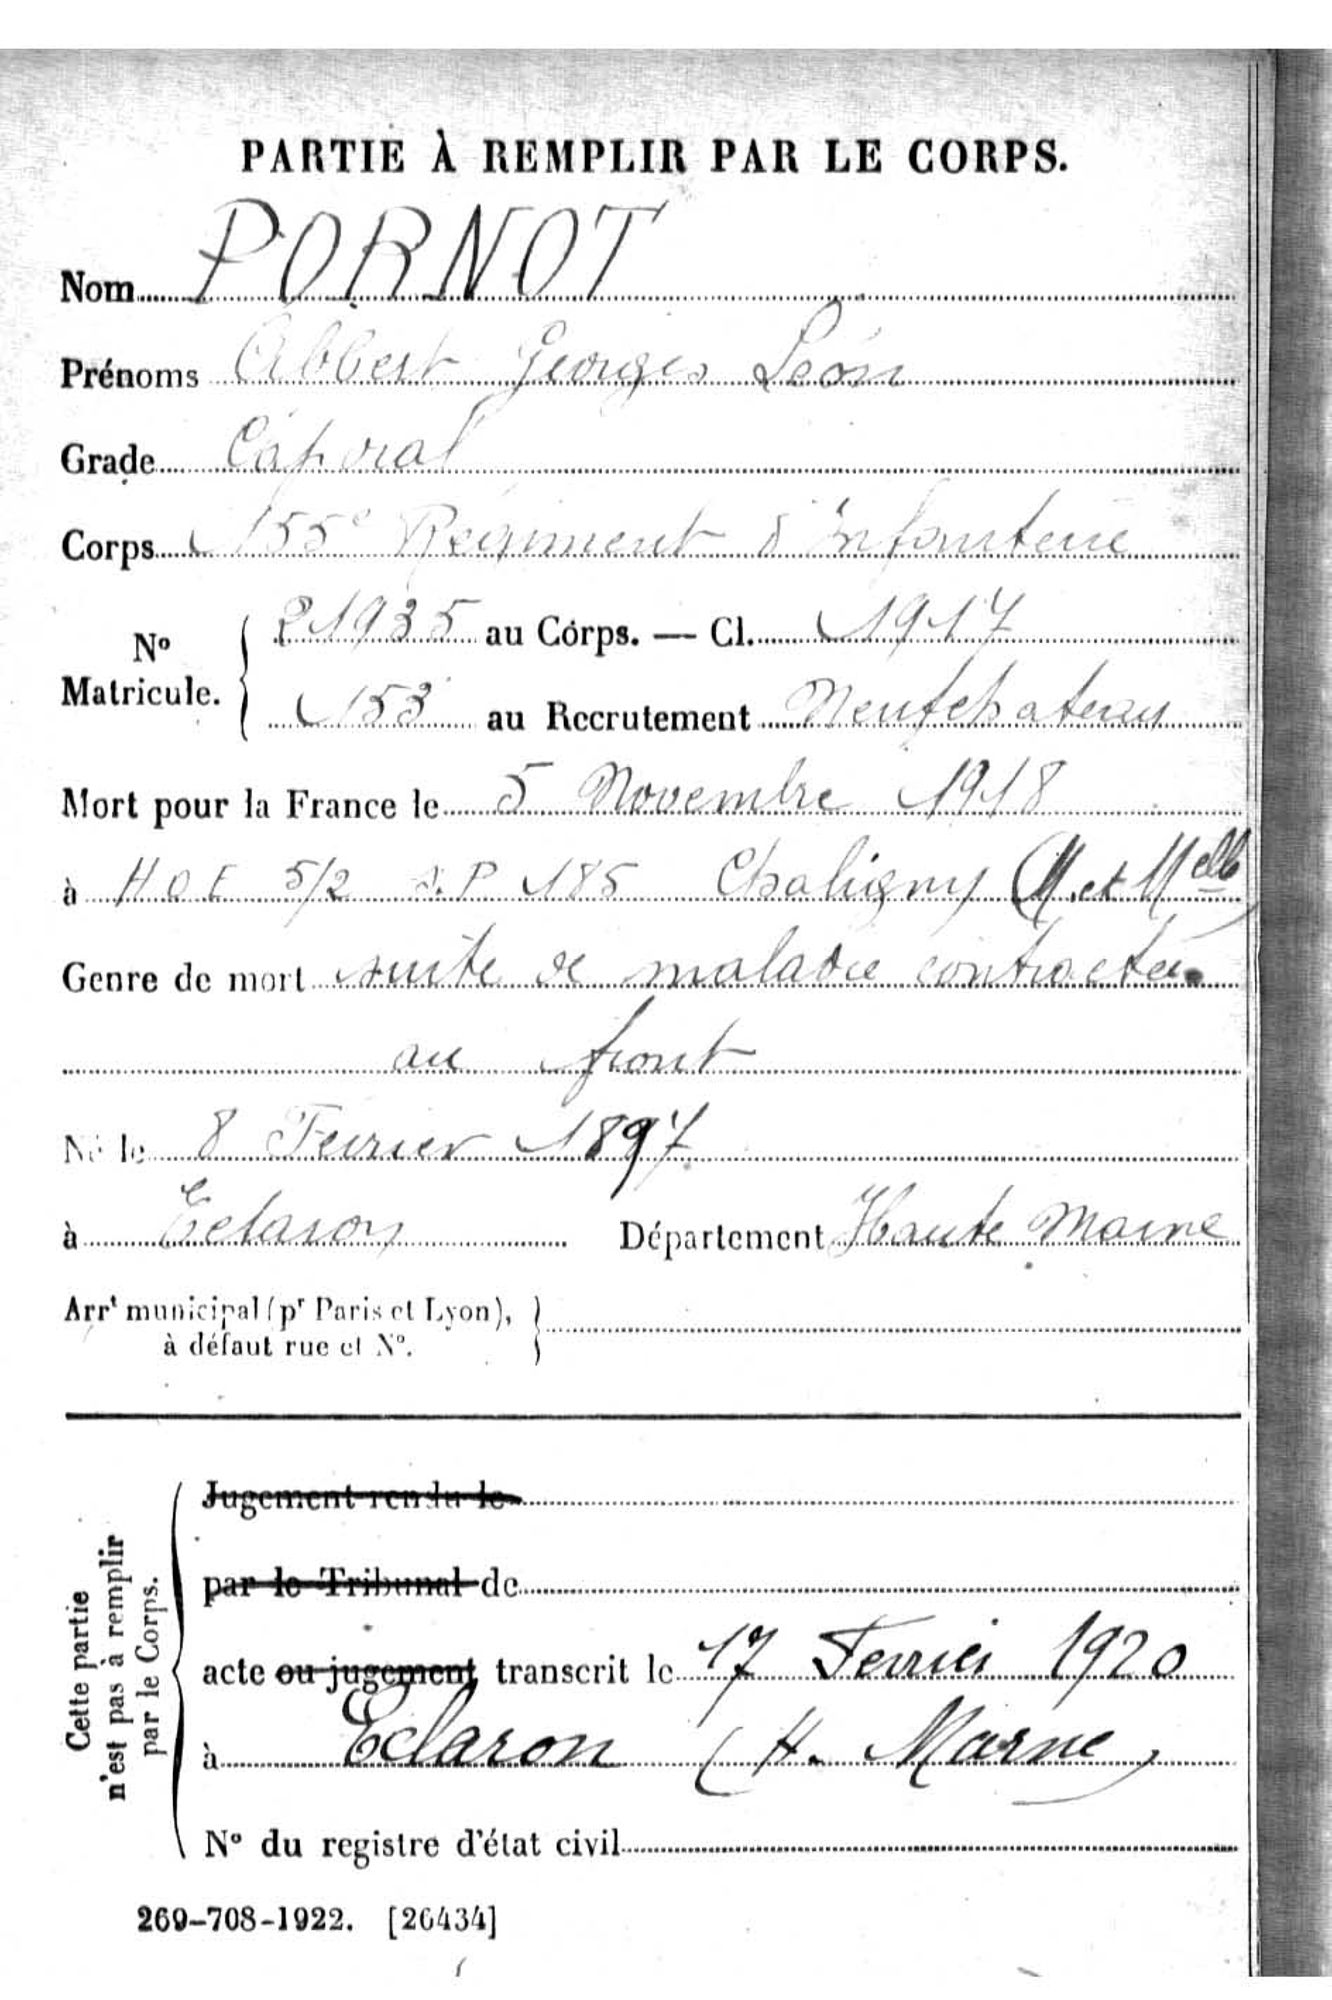 PARTIE À REMPLIR PAR LE CORPS.
Nom PORNOT
Prénoms Albert Georges Léon
Grade Caporal
Corps 155e Régiment d'Infanterie
No Matricule. 21935 au Corps. — Cl. 1917
153 au Recrutement Neufchateau
Mort pour la France le 5 Novembre 1918
à H O E 5/2 S.P 185 Chaligny (M. et Melle)
Genre de mort suite de maladie contractée
au front
Né le 8 Fevrier 1897
à Eclaron Département Haute Marne
Arrt municipal (pr Paris et Lyon),
à défaut rue et No.
Cette partie
n'est pas à remplir
par le Corps.
Jugement rendu le
par le Tribunal de
acte ou jugement transcrit le 17 Fevrier 1920
à Eclaron (H. Marne)
No du registre d'état civil
269-708-1922. [26434]